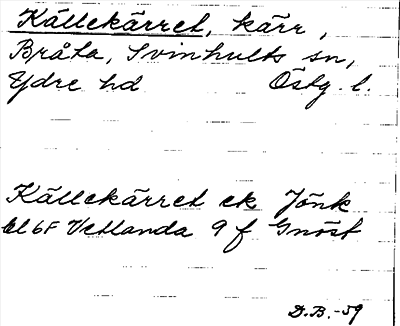 Källekärret, kärr,
Bråta, Svinhults sn,
Ydre hd Östg. l.
Källekärret ek Jönk
bl 6F Vetlanda 9 f Gnöst
D.B.-59